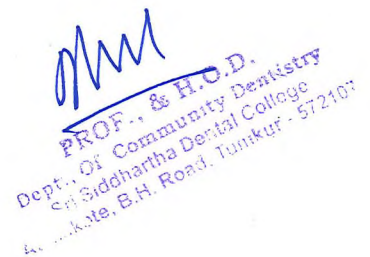 PROF., & H.O.D.
Dept., Of Community Dentistry
Sri Siddhartha Dental College
B.H. Road, Tumkur - 572107